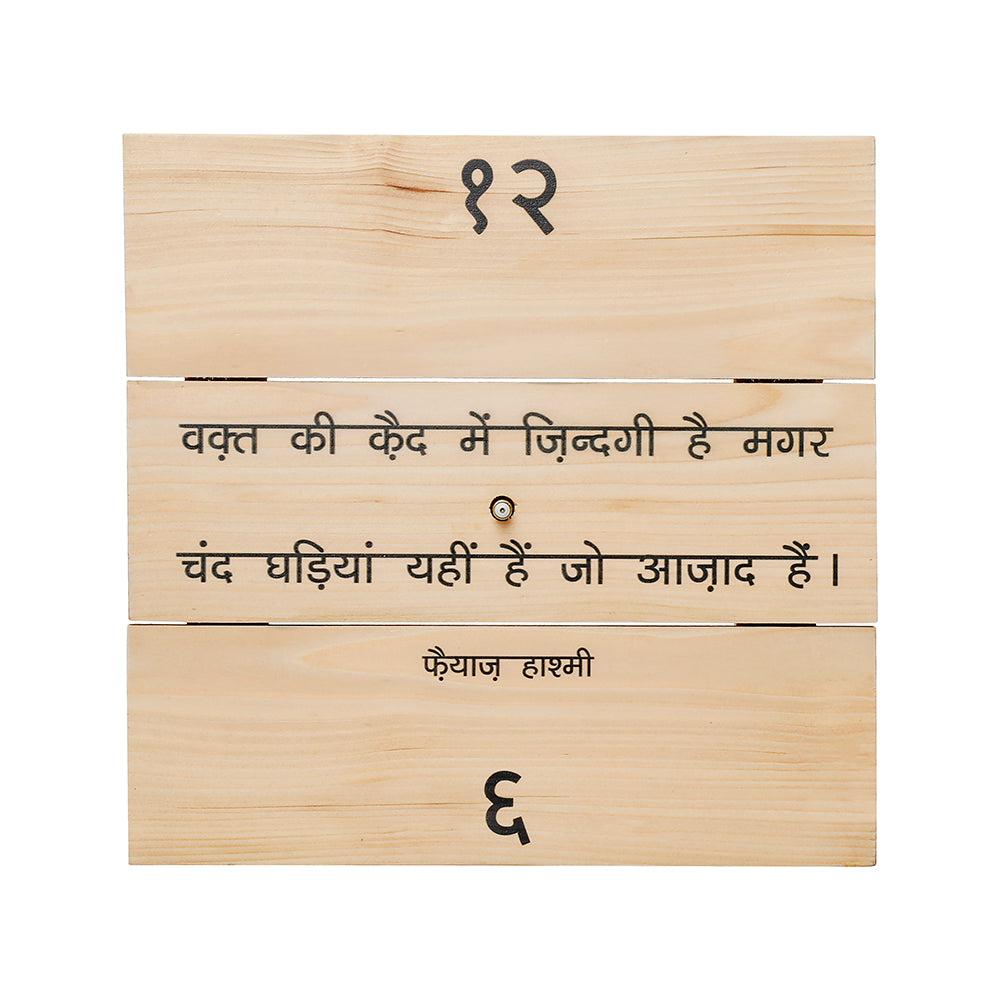 १२
वक़्त की क़ैद में ज़िन्दगी है मगर
चंद घड़ियां यहीं हैं जो आज़ाद हैं।
फ़ैयाज़ हाश्मी
६